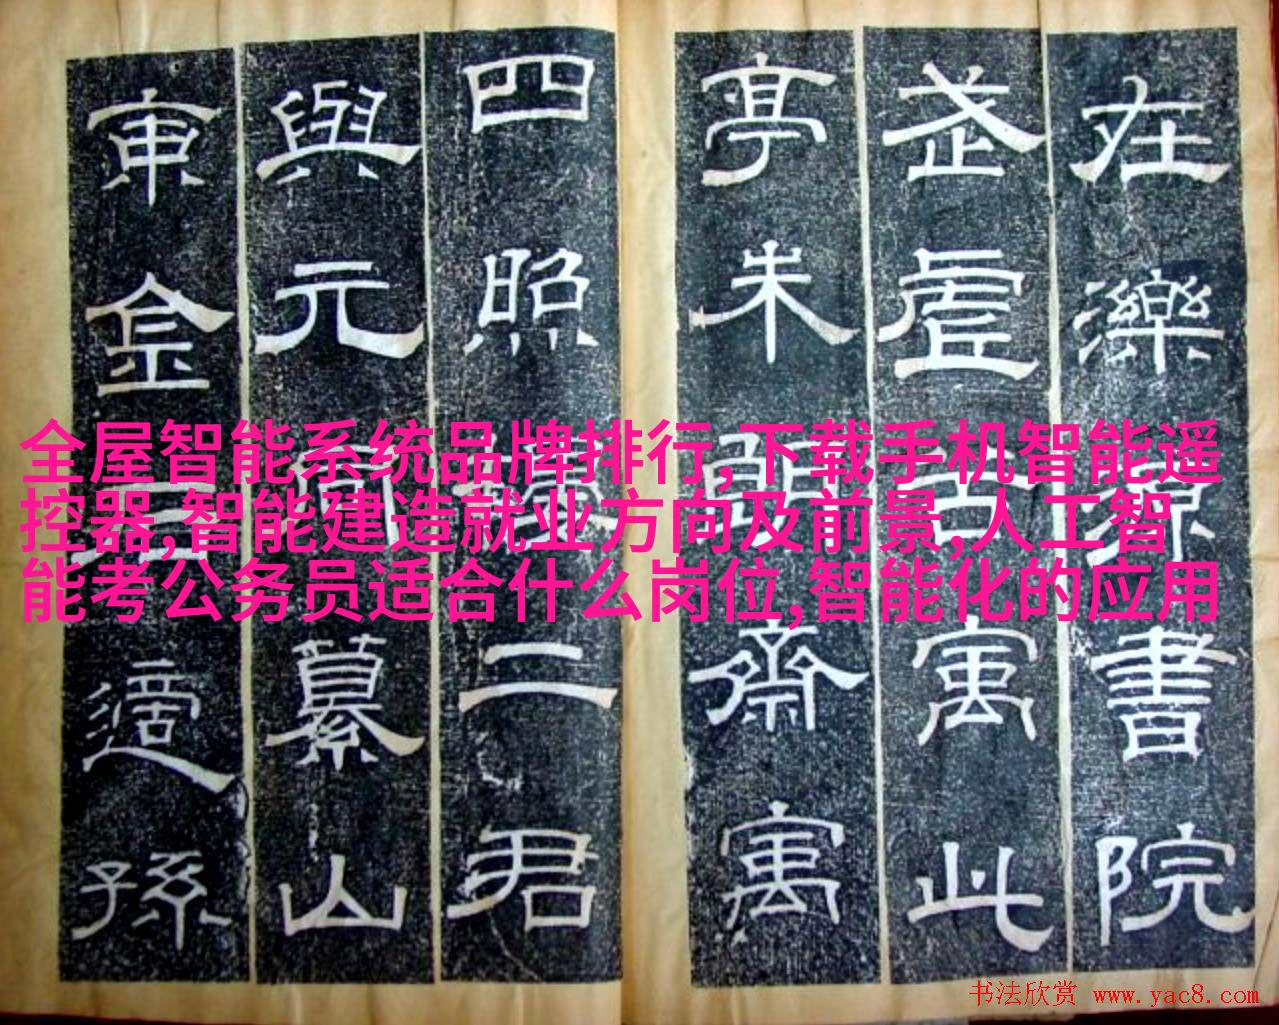 在濼源書院
武虛谷寓此
亭朱朗齋寓
四照樓二君
與元同纂山
東金石適孫
全屋智能系统品牌排行,下载手机智能遥
控器,智能建造就业方向及前景,人工智
能考公务员适合什么岗位,智能化的应用
书法欣赏 www.yac8.com